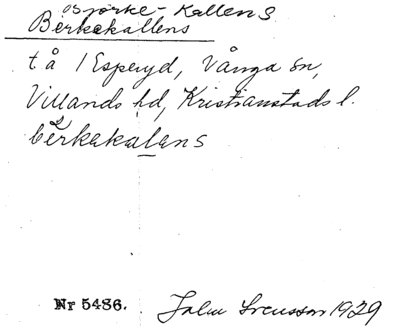 Björke-Kallens
Berkekallens
t å 1 Esperyd, Vånga sn,
Villands hd, Kristianstads l.
berkekalens
Nr 5486. Jalm Svensson 1929